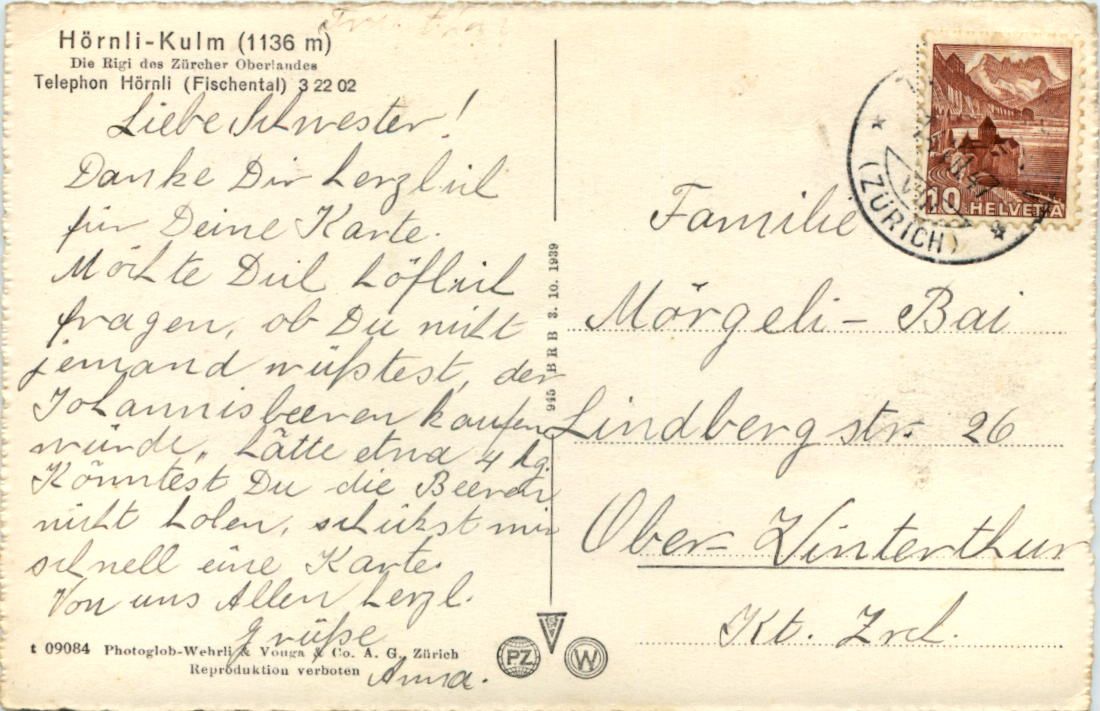 Hörnli-Kulm (1136 m)
Die Rigi des Zürcher Oberlandes
Telephon Hörnli (Fischental) 3 22 02
Liebe Schwester!
Danke Dir herzlich
für Deine Karte.
Möchte Dich höflich
fragen, ob Du nicht
jemand wüßtest, der
Johannisbeeren kaufen
würde, hätte etwa 4 kg.
Könntest Du die Beeren
nicht holen, schickst mir
schnell eine Karte.
Von uns Allen herzl.
Grüße
Anna.
t 09084 Photoglob-Wehrli & Vouga & Co. A. G., Zürich
Reproduktion verboten
945 BRB 3. 10. 1939
PZ
W
10 HELVETIA
(ZÜRICH)
Familie
Mörgeli - Bai
Lindbergstr. 26
Ober- Winterthur
Kt. Zrch.